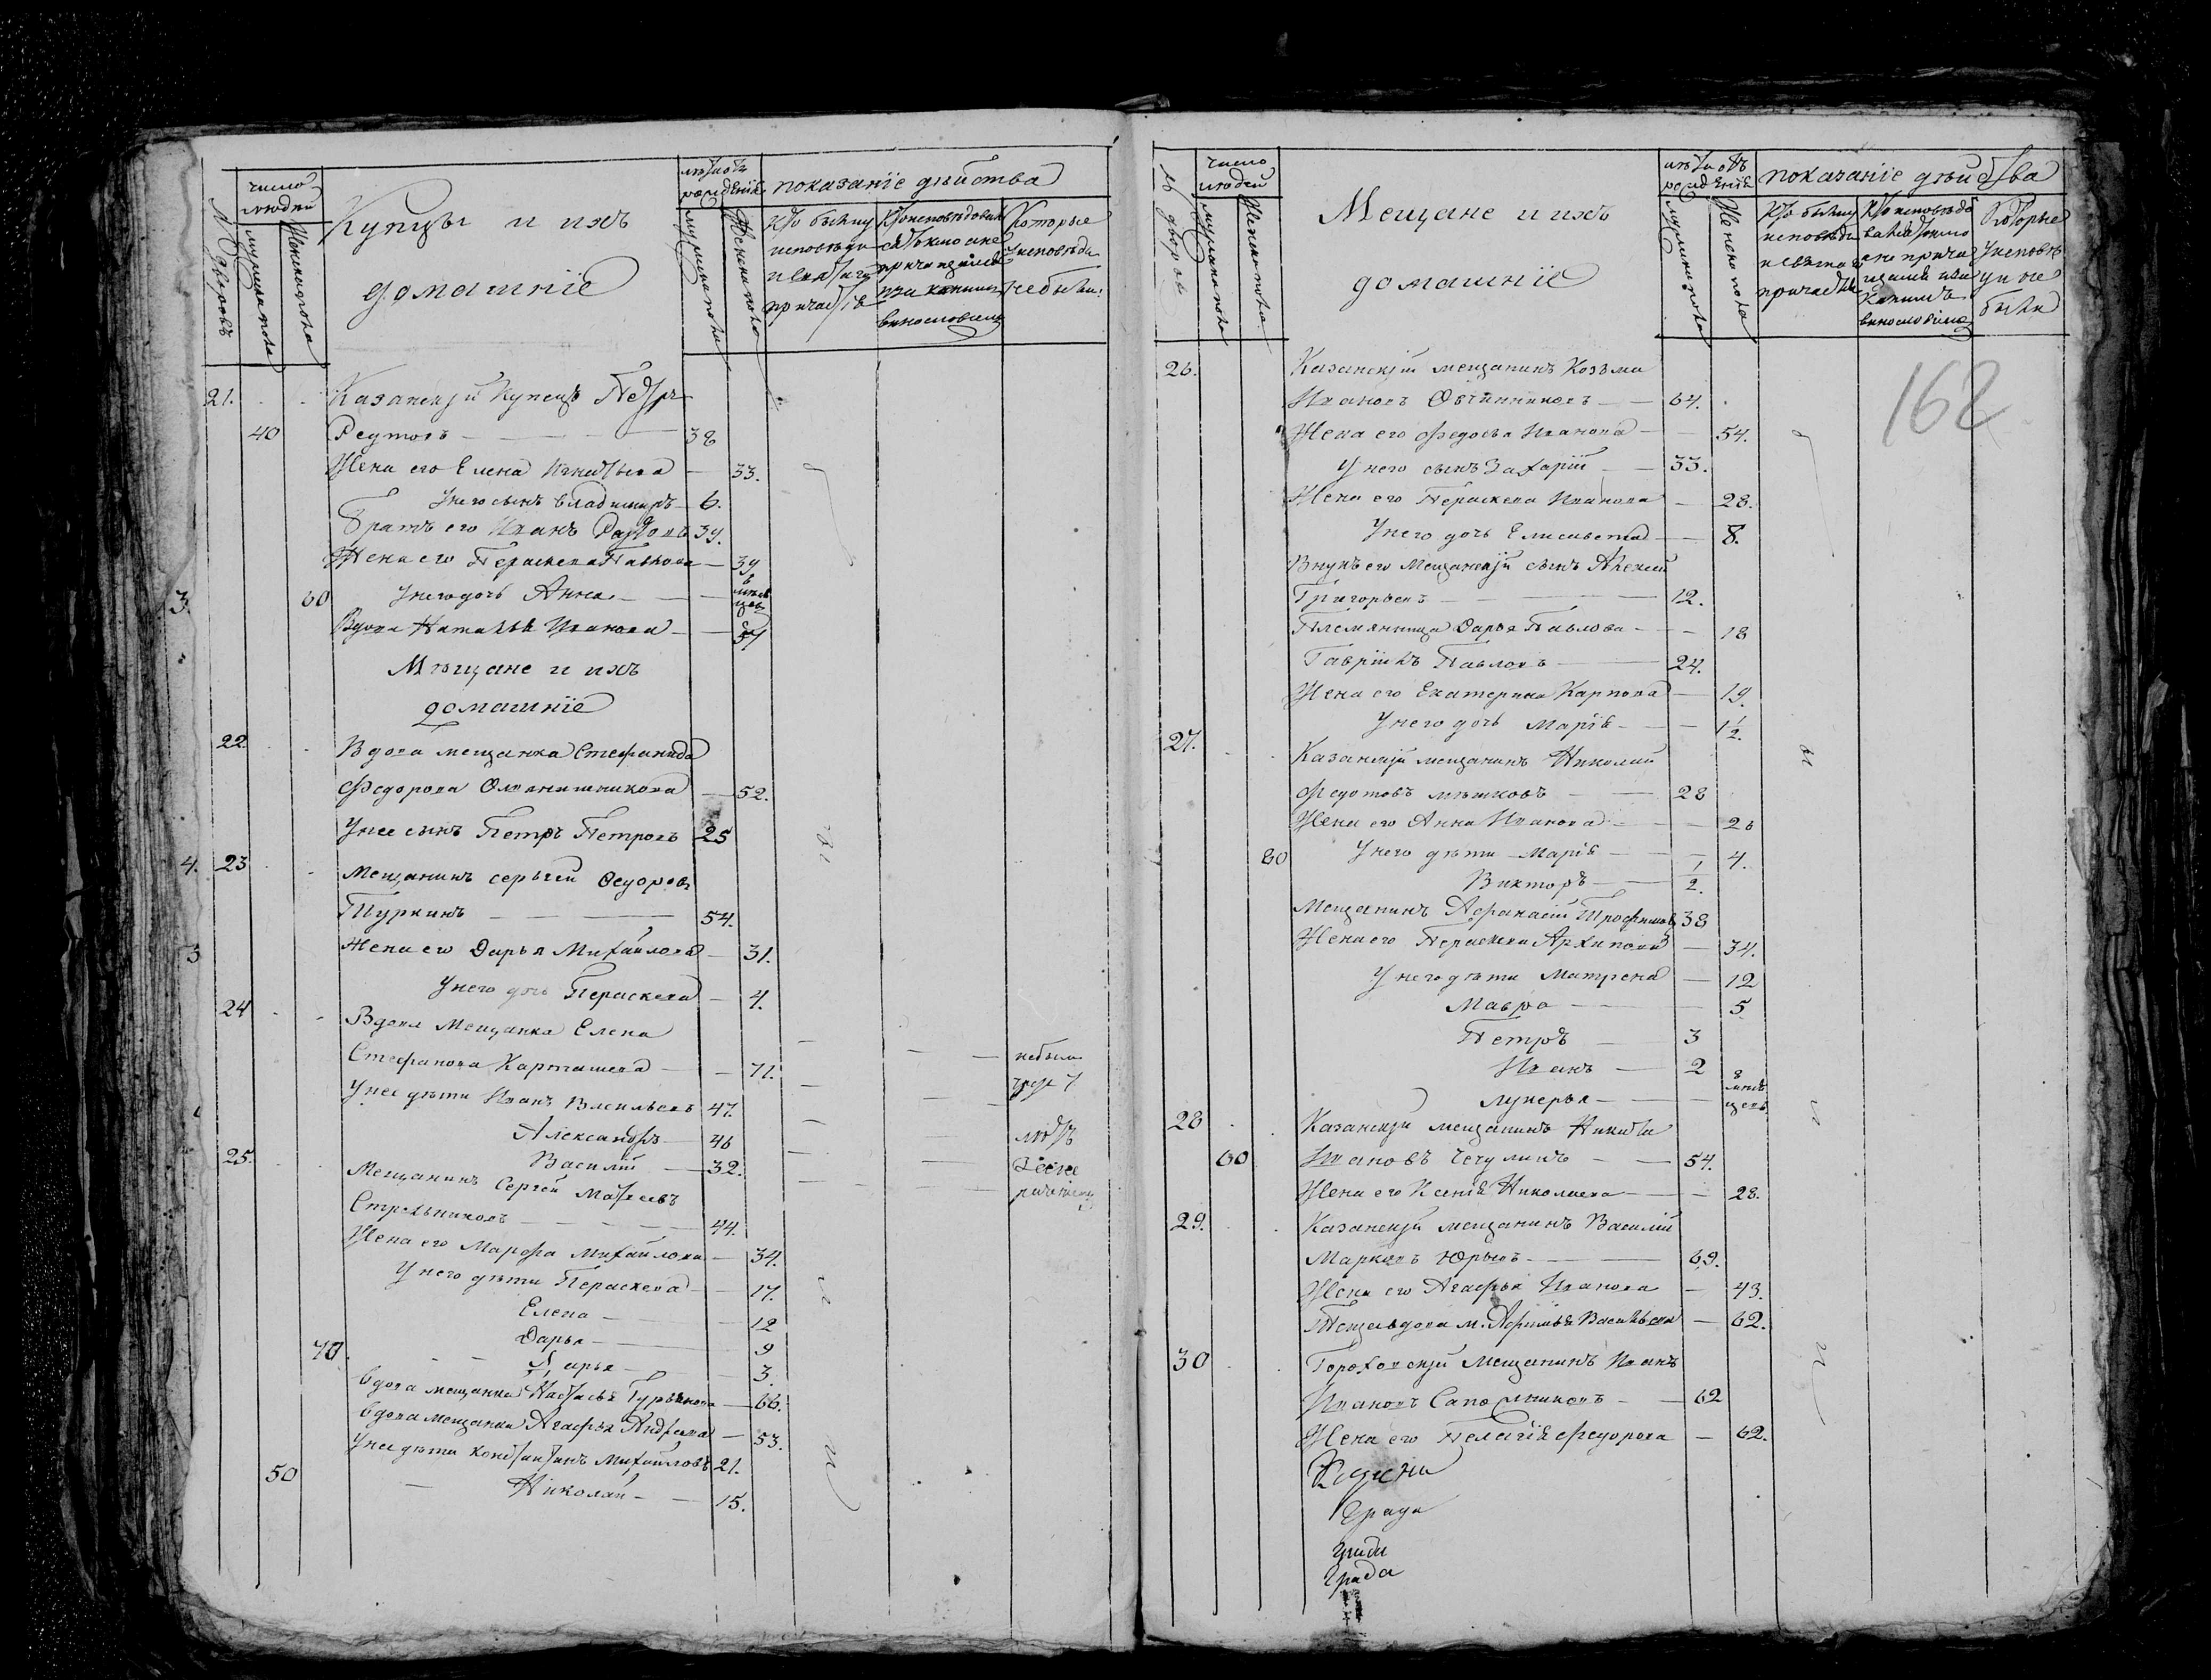 № дворовъ
число людей
мужеска пола
женска пола
Купцы и ихъ
домашніе
лѣта отъ рожденія
мужеска пола
женска пола
показаніе дѣйства
Кто были у исповѣди и святаго причастія
Кто исповѣдовался токмо а не причащался и за какимъ винословіемъ
Которые у исповѣди не были
21. Казанскій Купецъ Петръ
40 Реутовъ 38
Жена его Елена Игнатьева 33.
У него сынъ Владимиръ 6.
Братъ его Иванъ 39.
Жена его Пераскева Павлова 39
3. 60 У него дочь Анна 8 мѣсяцевъ
Вдова Наталья Иванова 57
Мѣщане и ихъ
домашніе
22. Вдова мещанка Стефанида
Федорова 52.
У нее сынъ Петръ Петровъ 25
4. 23 Мещанинъ Сергей Федоровъ
Туркинъ 54.
3 Жена его Дарья Михайлова 31.
У него дочь Пераскева 4.
24 Вдова Мещанка Елена
Стефанова Карташева 71. небыли
У нее дѣти Иванъ Васильевъ 47.
Александръ 46
Василій 32.
25. Мещанинъ Сергей Матвеевъ
Стрельниковъ 44.
Жена его Марфа Михайлова 34.
У него дѣти Пераскева 17.
Елена 12
Дарья 9
70. Марья 3.
Вдова мещанка Настасья Гурьянова 66.
Вдова мещанка Агафья Андреева 53.
У нее дѣти Константинъ Михайловъ 21.
50 Николай 15.
№ дворовъ
число людей
мужеска пола
женска пола
Мещане и ихъ
домашніе
лѣта отъ рожденія
мужеска пола
женска пола
показаніе дѣйства
Кто были у исповѣди и святаго причастія
Кто исповѣдовался токмо а не причащался и за какимъ винословіемъ
Которые у исповѣди не были
162
26. Казанскій мещанинъ Козьма
Ивановъ Овчинниковъ 64.
Жена его Федосья Иванова 54.
У него сынъ Захарій 33.
Жена его Пераскева Иванова 28.
У него дочь Елисавета 8.
Внукъ его Мещанскій сынъ Алексей
Григорьевъ 12.
Племянница Дарья Павлова 18
Гавріилъ Павловъ 24.
Жена его Екатерина Карпова 19.
У него дочь Марія 1 1/2.
27. Казанскій мещанинъ Николай
Федотовъ Мешковъ 28
Жена его Анна Иванова 26
80 У него дѣти Марія 4.
Викторъ 1/2.
Мещанинъ Афанасій Трофимовъ 38
Жена его Пераскева Архипова 34.
У него дѣти Матрена 12
Мавра 5
Петръ 3
Иванъ 2
Лукерья 8 мѣсяцевъ
28 Казанскій мещанинъ Никита
60 Ивановъ Чечулинъ 54.
Жена его Ксенія Николаева 28.
29. Казанскій мещанинъ Василій
Марковъ Юрьевъ 69.
Жена его Агафья Иванова 43.
Теща вдова м. Афимья Васильева 62.
30 Гороховскій Мещанинъ Иванъ
Ивановъ Сапожниковъ 62
Жена его Пелагія Федорова 62.
града